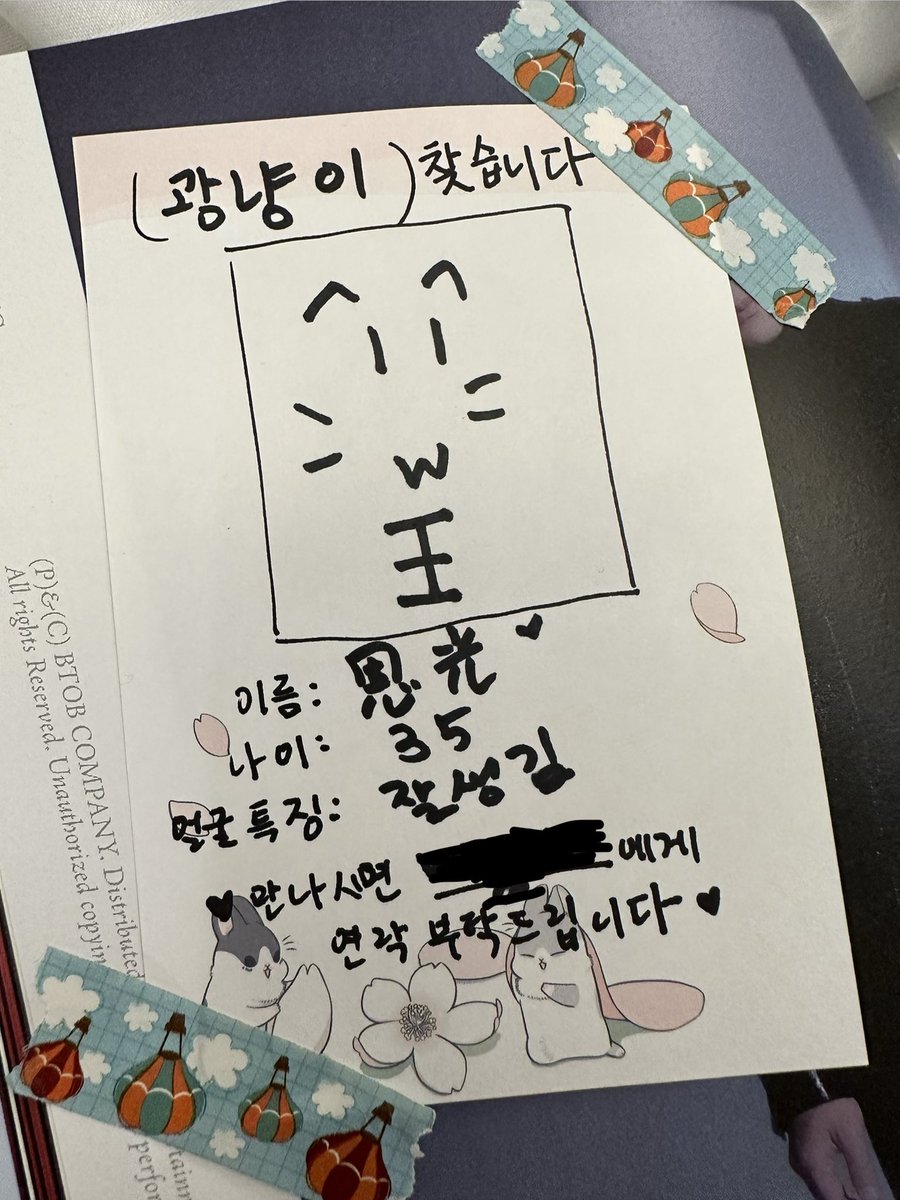 (광냥이)찾습니다
w
王
이름: 恩光♥
나이: 35
얼굴 특징: 잘생김
♥만나시면 에게
연락 부탁드립니다♥
(P)&(C) BTOB COMPANY. Distributed
All rights Reserved. Unauthorized copyin